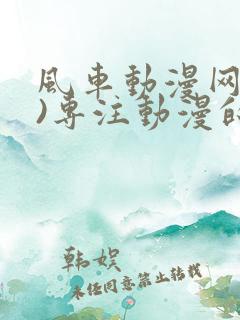 風车動漫网
)专注動漫的
韩娱
未经同意禁止转载